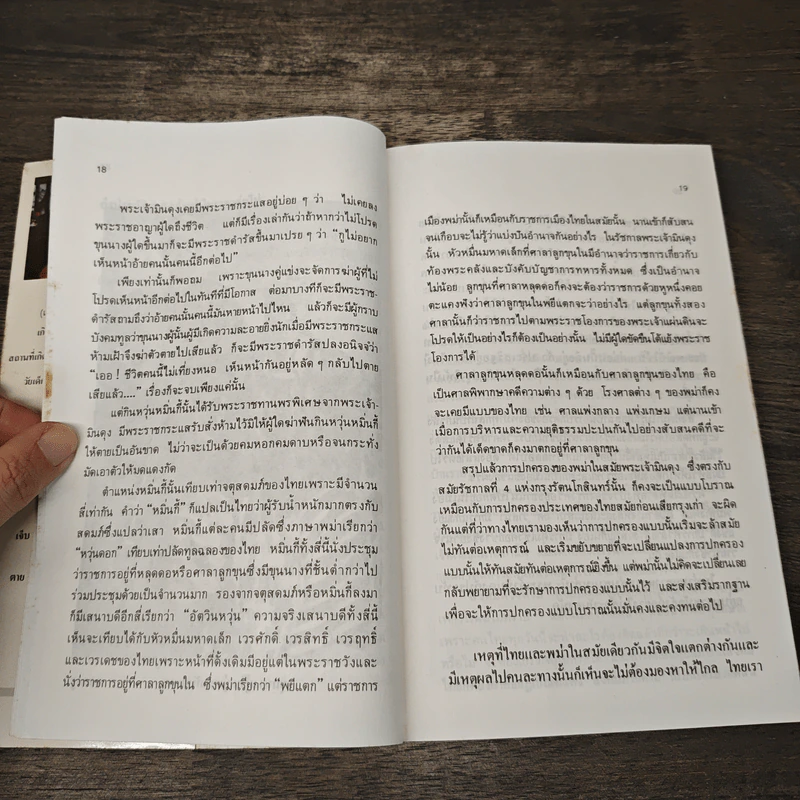 18
พระเจ้ามินดุงเคยมีพระราชกระแสอยู่บ่อย ๆ ว่า ไม่เคยลง
พระราชอาญาผู้ใดถึงชีวิต แต่ก็มีเรื่องเล่ากันว่าถ้าหากว่าไม่โปรด
ขุนนางผู้ใดขึ้นมาก็จะมีพระราชดำรัสขึ้นมาเปรย ๆ ว่า “กูไม่อยาก
เห็นหน้าอ้ายคนนั้นคนนี้อีกต่อไป”
เพียงเท่านั้นก็พอถม เพราะขุนนางคู่แข่งจะจัดการฆ่าผู้ที่ไม่
โปรดเห็นหน้าอีกต่อไปในทันทีที่มีโอกาส ต่อมาบางทีก็มีพระราช-
ดำรัสถามถึงว่าอ้ายคนนั้นคนนี้มันหายหน้าไปไหน แล้วก็จะมีผู้กราบ
บังคมทูลว่าขุนนางผู้นั้นผู้นี้เกิดความละอายยิ่งนักเมื่อมีพระราชกระแส
ห้ามเฝ้าจึงฆ่าตัวตายไปเสียแล้ว ก็จะมีพระราชดำรัสปลงอนิจจังว่า
“เออ ! ชีวิตคนนี้ไม่เที่ยงหนอ เห็นหน้ากันอยู่หลัด ๆ กลับไปตาย
เสียแล้ว....” เรื่องก็จะจบเพียงแค่นั้น
แต่กินหวุ่นหมิ่นกี้นั้นได้รับพระราชทานพรพิเศษจากพระเจ้า-
มินดุง มีพระราชกระแสรับสั่งห้ามไว้มิให้ผู้ใดฆ่าฟันกินหวุ่นหมิ่นกี้
ให้ตายเป็นอันขาด ไม่ว่าจะเป็นด้วยคมหอกคมดาบหรือจนกระทั่ง
มัดเอาตัวให้มดแดงกัด
ตำแหน่งหมิ่นกี้นั้นเทียบเท่าจตุสดมภ์ของไทยเพราะมีจำนวน
สี่เท่ากัน คำว่า “หมิ่นกี้” ก็แปลเป็นไทยว่าผู้รับน้ำหนักมากตรงกับ
สดมภ์ซึ่งแปลว่าเสา หมิ่นกี้แต่ละคนมีปลัดซึ่งภาษาพม่าเรียกว่า
“หวุ่นดอก” เทียบเท่าปลัดทูลฉลองของไทย หมิ่นกี้ทั้งสี่นี้นั่งประชุม
ว่าราชการอยู่ที่หลุดดอหรือศาลาลูกขุนซึ่งมีขุนนางที่ชั้นต่ำกว่าไป
ร่วมประชุมด้วยเป็นจำนวนมาก รองจากจตุสดมภ์หรือหมิ่นกี้ลงมา
ก็มีเสนาบดีอีกสี่เรียกว่า “อัตวินหวุ่น” ความจริงเสนาบดีทั้งสี่นี้
เห็นจะเทียบได้กับหัวหมื่นมหาดเล็ก เวรศักดิ์ เวรสิทธิ์ เวรฤทธิ์
และเวรเดชของไทยเพราะหน้าที่ดั้งเดิมมีอยู่แต่ในพระราชวังและ
นั่งว่าราชการอยู่ที่ศาลาลูกขุนใน ซึ่งพม่าเรียกว่า “พยีแตก” แต่ราชการ
19
เมืองพม่านั้นก็เหมือนกับราชการเมืองไทยในสมัยนั้น นานเข้าก็สับสน
จนเกือบจะไม่รู้ว่าแบ่งปันอำนาจกันอย่างไร ในรัชกาลพระเจ้ามินดุง
นั้น หัวหมื่นมหาดเล็กที่ศาลาลูกขุนในมีอำนาจว่าราชการเกี่ยวกับ
ท้องพระคลังและบังคับบัญชาการทหารทั้งหมด ซึ่งเป็นอำนาจ
ไม่น้อย ลูกขุนที่ศาลาหลุดดอก็คงจะต้องว่าราชการด้วยหูหนึ่งคอย
ตะแคงฟังว่าศาลาลูกขุนในพยีแตกจะว่าอย่างไร แต่ลูกขุนทั้งสอง
ศาลานั้นก็ว่าราชการไปตามพระราชโองการของพระเจ้าแผ่นดินจะ
โปรดให้เป็นอย่างไรก็ต้องเป็นอย่างนั้น ไม่มีผู้ใดขัดขืนโต้แย้งพระราช
โองการได้
ศาลาลูกขุนหลุดดอนั้นก็เหมือนกับศาลาลูกขุนของไทย คือ
เป็นศาลพิพากษาคดีความต่าง ๆ ด้วย โรงศาลต่าง ๆ ของพม่าก็คง
จะเคยมีแบบของไทย เช่น ศาลแพ่งกลาง แพ่งเกษม แต่นานเข้า
เมื่อการบริหารและความยุติธรรมปะปนกันไปอย่างสับสนคดีที่จะ
ว่ากันได้เด็ดขาดก็คงมาตกอยู่ที่ศาลาลูกขุน
สรุปแล้วการปกครองของพม่าในสมัยพระเจ้ามินดุง ซึ่งตรงกับ
สมัยรัชกาลที่ 4 แห่งกรุงรัตนโกสินทร์นั้น ก็คงจะเป็นแบบโบราณ
เหมือนกับการปกครองประเทศของไทยสมัยก่อนเสียกรุงเก่า จะผิด
กันแต่ที่ว่าทางไทยเรามองเห็นว่าการปกครองแบบนั้นเริ่มจะล้าสมัย
ไม่ทันต่อเหตุการณ์ และเริ่มขยับขยายที่จะเปลี่ยนแปลงการปกครอง
แบบนั้นให้ทันสมัยทันต่อเหตุการณ์ยิ่งขึ้น แต่พม่านั้นไม่คิดจะเปลี่ยนเลย
กลับพยายามที่จะรักษาการปกครองแบบนั้นไว้ และส่งเสริมรากฐาน
เพื่อจะให้การปกครองแบบโบราณนั้นมั่นคงและคงทนต่อไป
เหตุที่ไทยและพม่าในสมัยเดียวกันมีจิตใจแตกต่างกันและ
มีเหตุผลไปคนละทางนั้นก็เห็นจะไม่ต้องมองหาให้ไกล ไทยเรา
สถานที่เกิด
วัยเด็ก
เจ็บ
ตาย